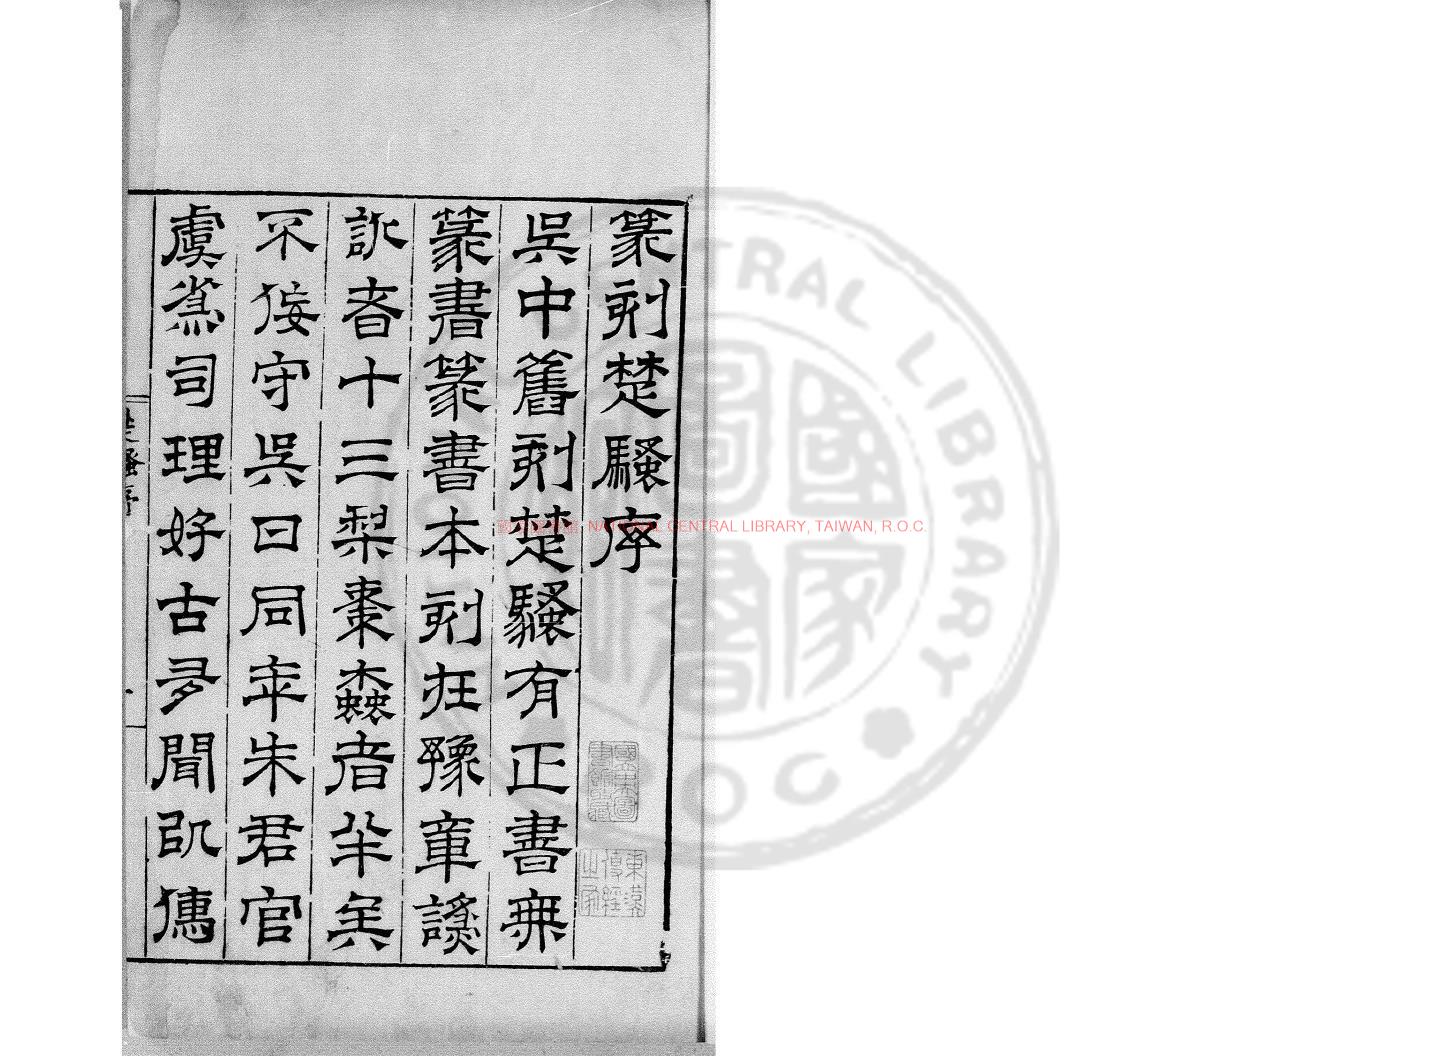 篆刻楚騷序
吳中舊刻楚騷有正書無
篆書篆書本刻在豫章譌
訛者十三梨棗蠹者半矣
不佞守吳日同年朱君官
虞蒸司理好古多聞以舊
楚騷序
國家圖書館 NATIONAL CENTRAL LIBRARY, TAIWAN, R.O.C.
CENTRAL LIBRARY
ROC
國家圖書